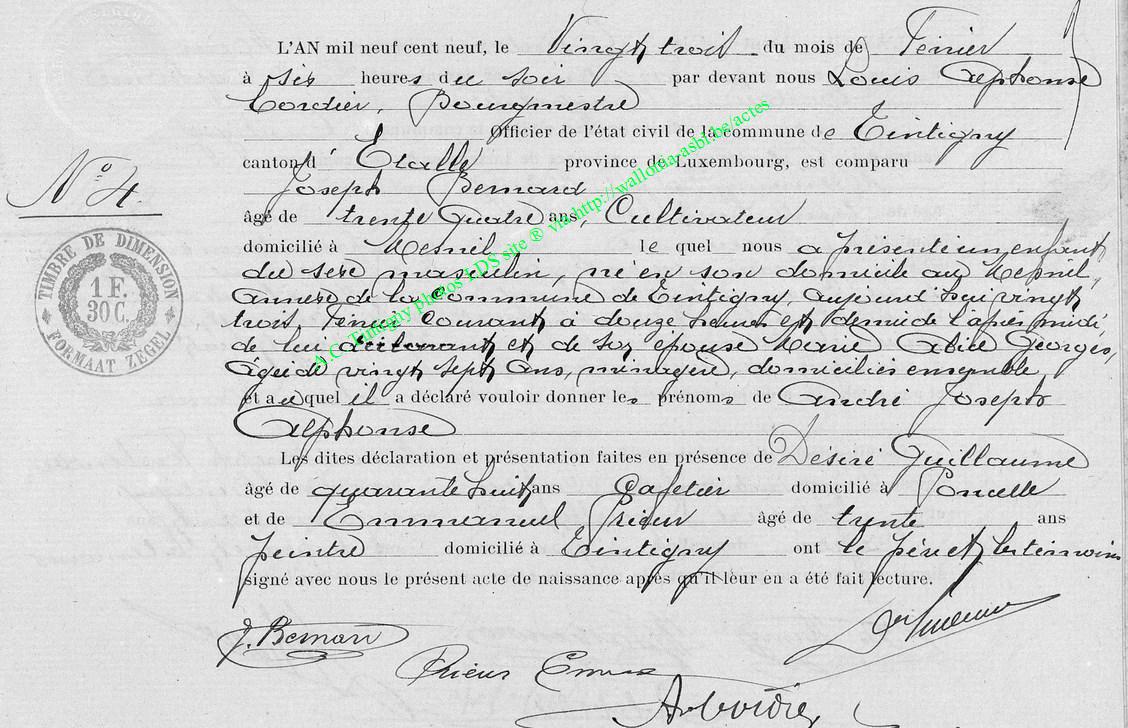 L'AN mil neuf cent neuf, le Vingt trois du mois de Février
à six heures du soir par devant nous Louis Alphonse
Cordier, Bourgmestre
Officier de l'état civil de la commune de Tintigny
canton d' Étalle province de Luxembourg, est comparu
Joseph Bernard
N° 4.
âgé de trente quatre ans, Cultivateur
domicilié à Mesnil le quel nous a présenté un enfant
du sexe masculin, né en son domicile au Mesnil,
annexe de la Commune de Tintigny, aujourd'hui vingt
trois Février Courant à douze heures et demie de l'après midi,
de lui déclarant et de son épouse Marie Georges,
âgée de vingt sept ans, ménagère, domiciliés ensemble,
et auquel il a déclaré vouloir donner les prénoms de André Joseph
Alphonse
Les dites déclaration et présentation faites en présence de Désiré Guillaume
âgé de quarante huit ans Cafetier domicilié à Poncelle
et de Emmanuel Prieur âgé de trente ans
peintre domicilié à Tintigny ont le père et les témoins
signé avec nous le présent acte de naissance après qu'il leur en a été fait lecture.
TIMBRE DE DIMENSION
1 F.
30 C.
FORMAAT ZEGEL
A.C. Tintigny photos LDS site ® via http://wallonia.asbl.be/actes
J. Bernard
Prieur Emm